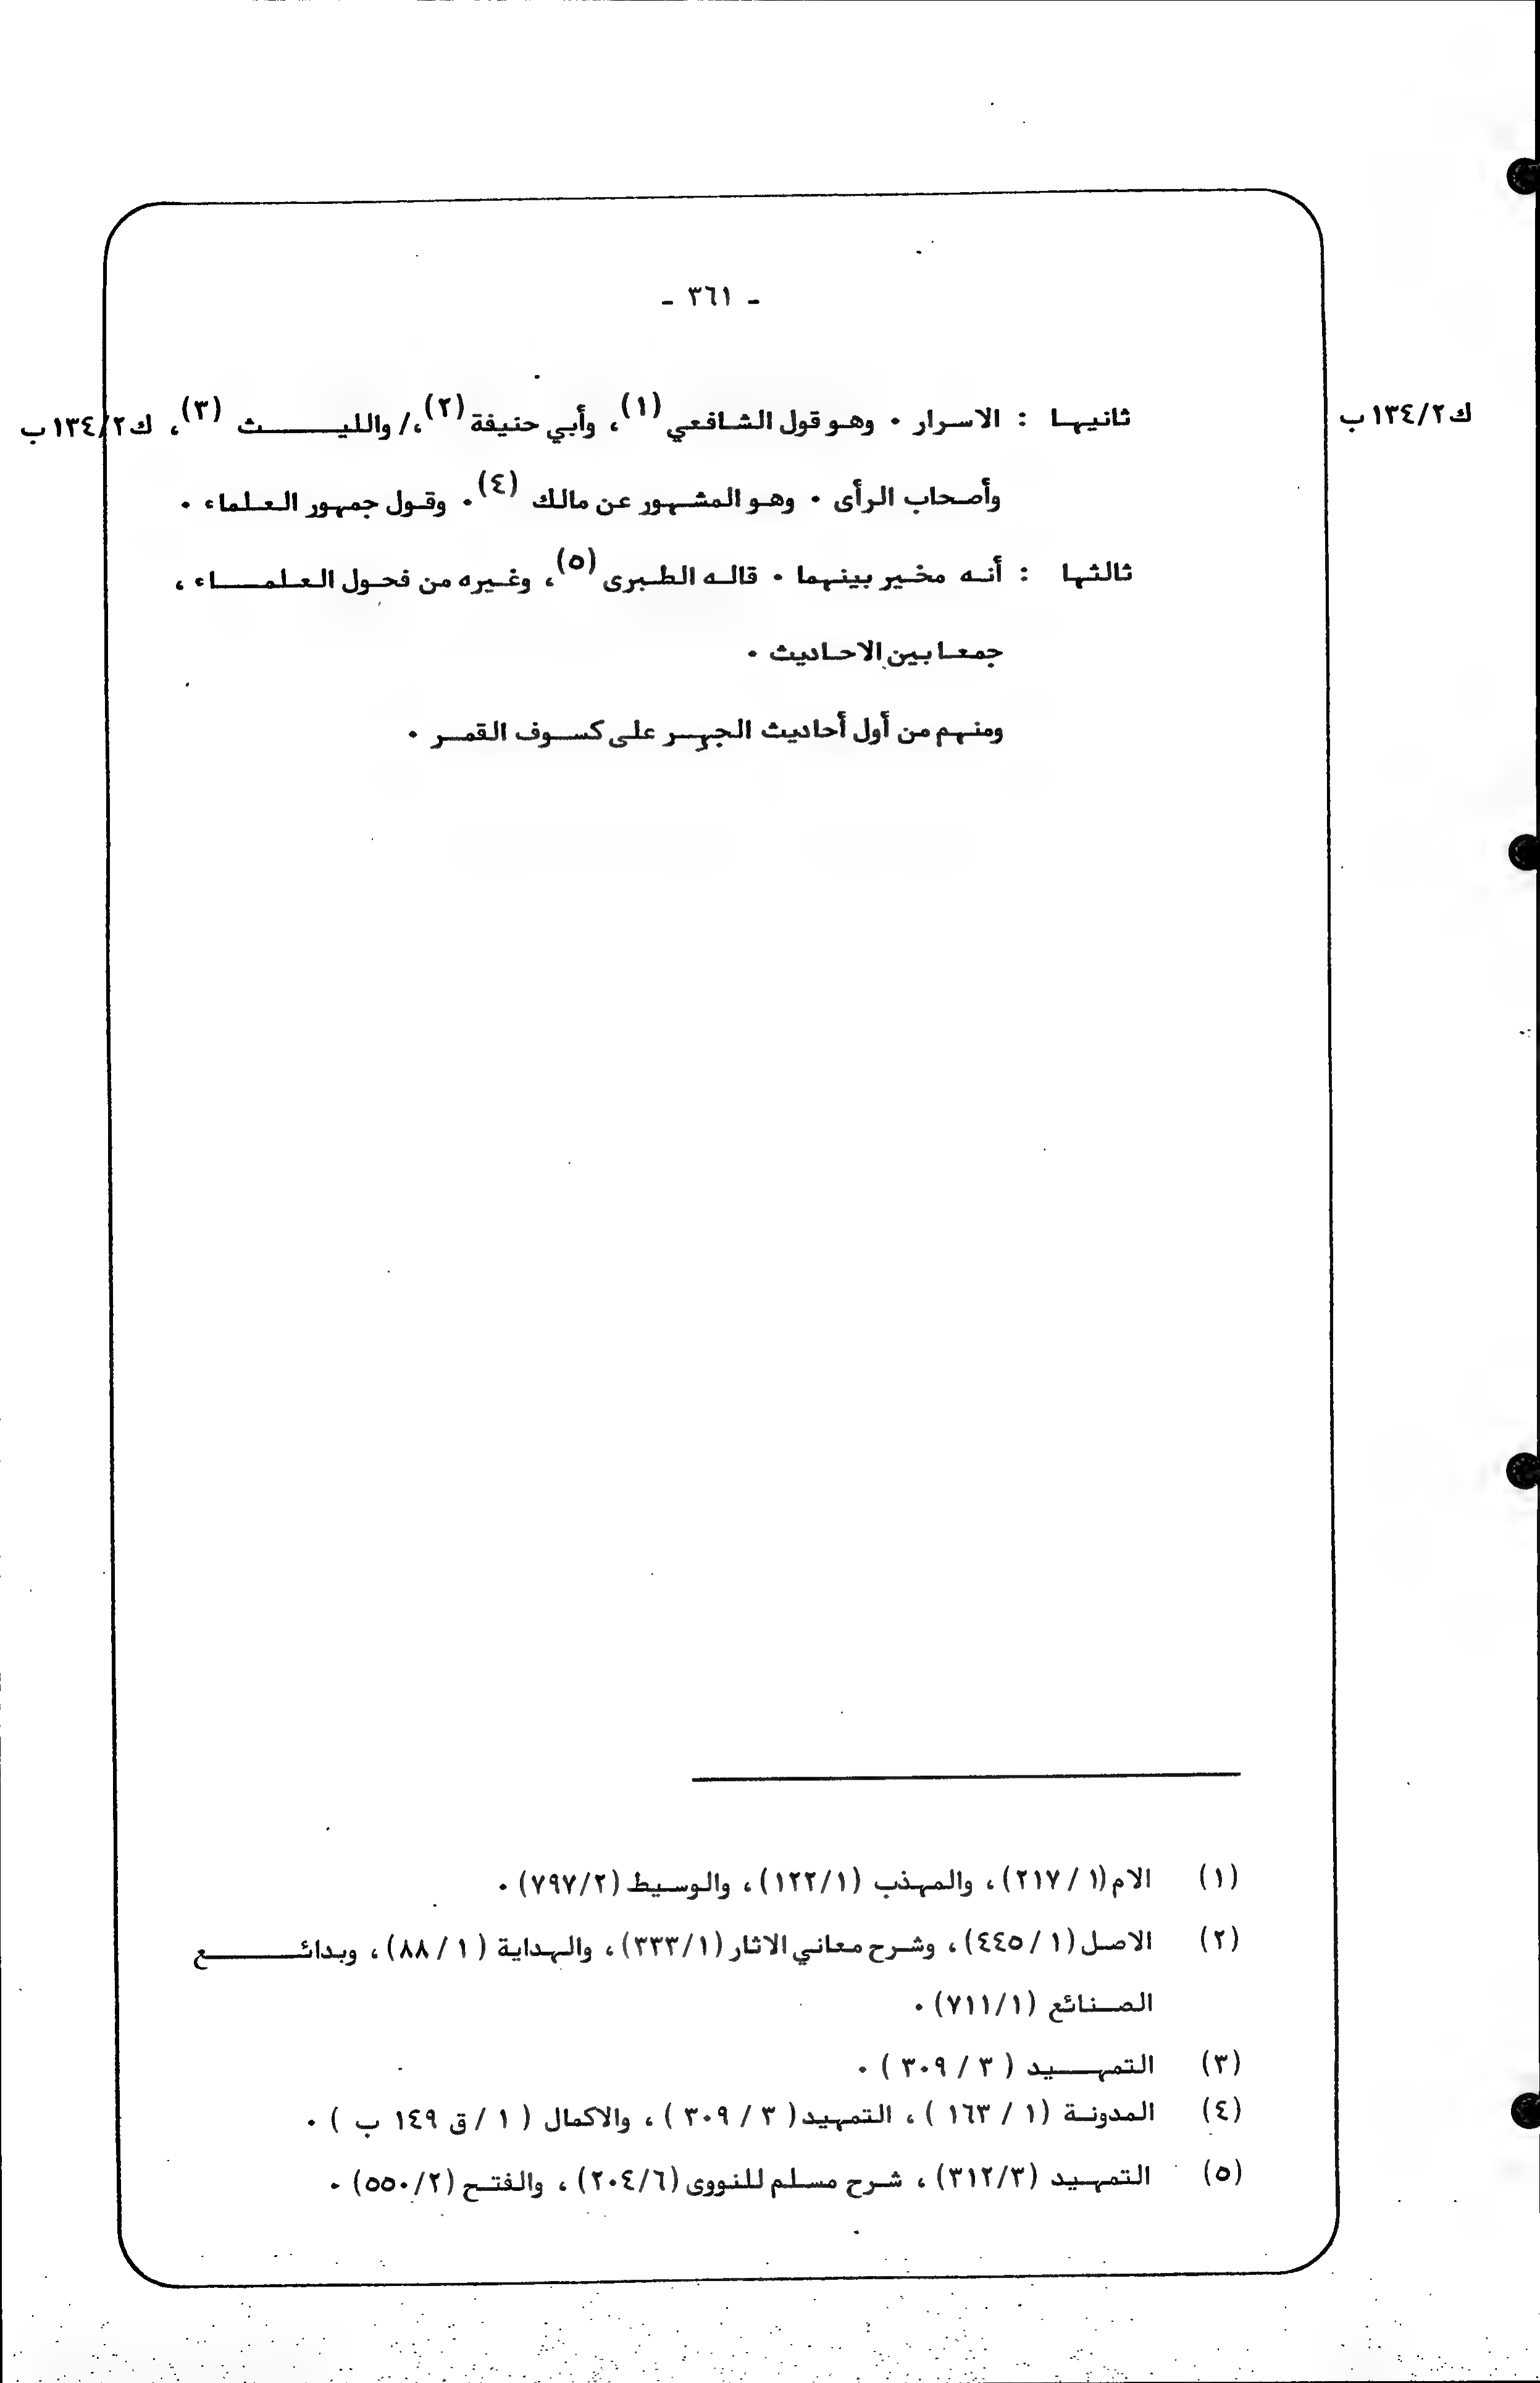 - ٣٦١ -
ك١٣٤/٢ب
ثانيها : الاسرار ٠ وهو قول الشافعي (١)، وأبي حنيفة (٢)،/ والليث (٣)، ك١٣٤/٢ب
وأصحاب الرأى ٠ وهو المشهور عن مالك (٤)٠ وقول جمهور العلماء ٠
ثالثها : أنه مخير بينهما ٠ قاله الطبرى (٥)، وغيره من فحول العلماء ،
جمعا بين الاحاديث ٠
ومنهم من أول أحاديث الجهر على كسوف القمر ٠
(١) الام (١ / ٢١٧) ، والمهذب (١٢٢/١) ، والوسيط (٧٩٧/٢) ٠
(٢) الاصل (١ / ٤٤٥) ، وشرح معاني الاثار (٣٣٣/١) ، والهداية ( ١ / ٨٨) ، وبدائع
الصنائع (٧١١/١) ٠
(٣) التمهيد ( ٣ / ٣٠٩ ) ٠
(٤) المدونة (١ / ١٦٣ ) ، التمهيد ( ٣ / ٣٠٩ ) ، والاكمال ( ١ / ق ١٤٩ ب ) ٠
(٥) التمهيد (٣١٢/٣) ، شرح مسلم للنووى (٢٠٤/٦) ، والفتح (٥٥٠/٢) ٠